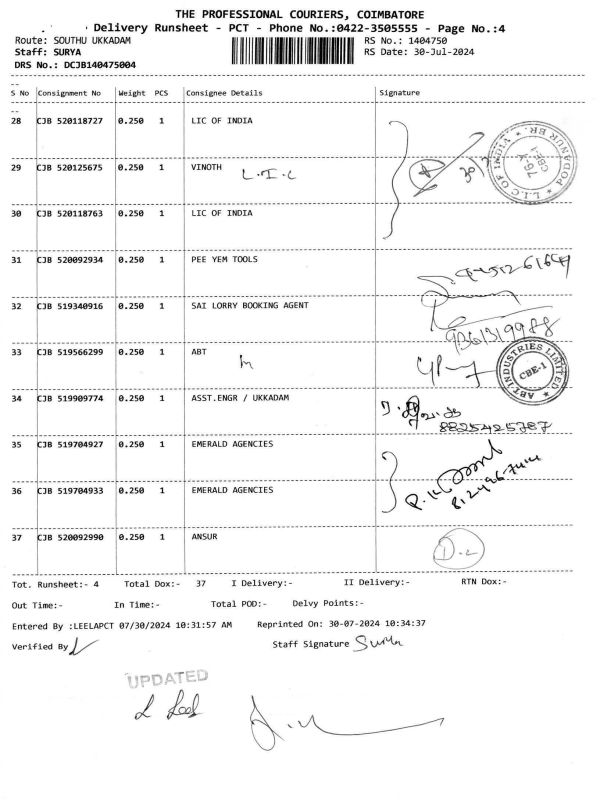 THE PROFESSIONAL COURIERS, COIMBATORE
Delivery Runsheet - PCT - Phone No.:0422-3505555 - Page No.:4
Route: SOUTHU UKKADAM RS No.: 1404750
Staff: SURYA RS Date: 30-Jul-2024
DRS No.: DCJB140475004
S No Consignment No Weight PCS Consignee Details Signature
28 CJB 520118727 0.250 1 LIC OF INDIA
29 CJB 520125675 0.250 1 VINOTH L.I.C
L.I.C OF INDIA PODANUR BR. CBE-1
30 CJB 520118763 0.250 1 LIC OF INDIA
31 CJB 520092934 0.250 1 PEE YEM TOOLS
32 CJB 519340916 0.250 1 SAI LORRY BOOKING AGENT
33 CJB 519566299 0.250 1 ABT
ABT INDUSTRIES LIMITED CBE-1
34 CJB 519909774 0.250 1 ASST.ENGR / UKKADAM
8825425787
35 CJB 519704927 0.250 1 EMERALD AGENCIES
36 CJB 519704933 0.250 1 EMERALD AGENCIES
37 CJB 520092990 0.250 1 ANSUR
Tot. Runsheet:- 4 Total Dox:- 37 I Delivery:- II Delivery:- RTN Dox:-
Out Time:- In Time:- Total POD:- Delvy Points:-
Entered By :LEELAPCT 07/30/2024 10:31:57 AM Reprinted On: 30-07-2024 10:34:37
Verified By Staff Signature Surya
UPDATED